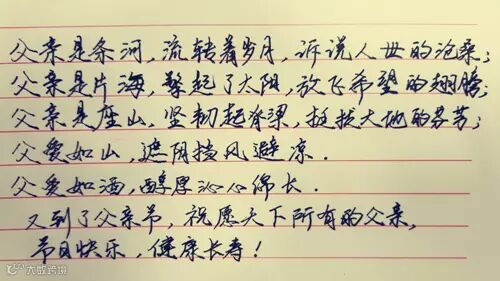 父亲是条河，流转着岁月，诉说人世的沧桑；
父亲是片海，擎起了太阳，放飞希望的翅膀；
父亲是座山，坚韧起脊梁，挺拔大地的芬芳；
父爱如山，遮阴挡风避凉．
父爱如酒，醇厚沁心绵长．
又到了父亲节，祝愿天下所有的父亲，
节日快乐，健康长寿！
大数跨境